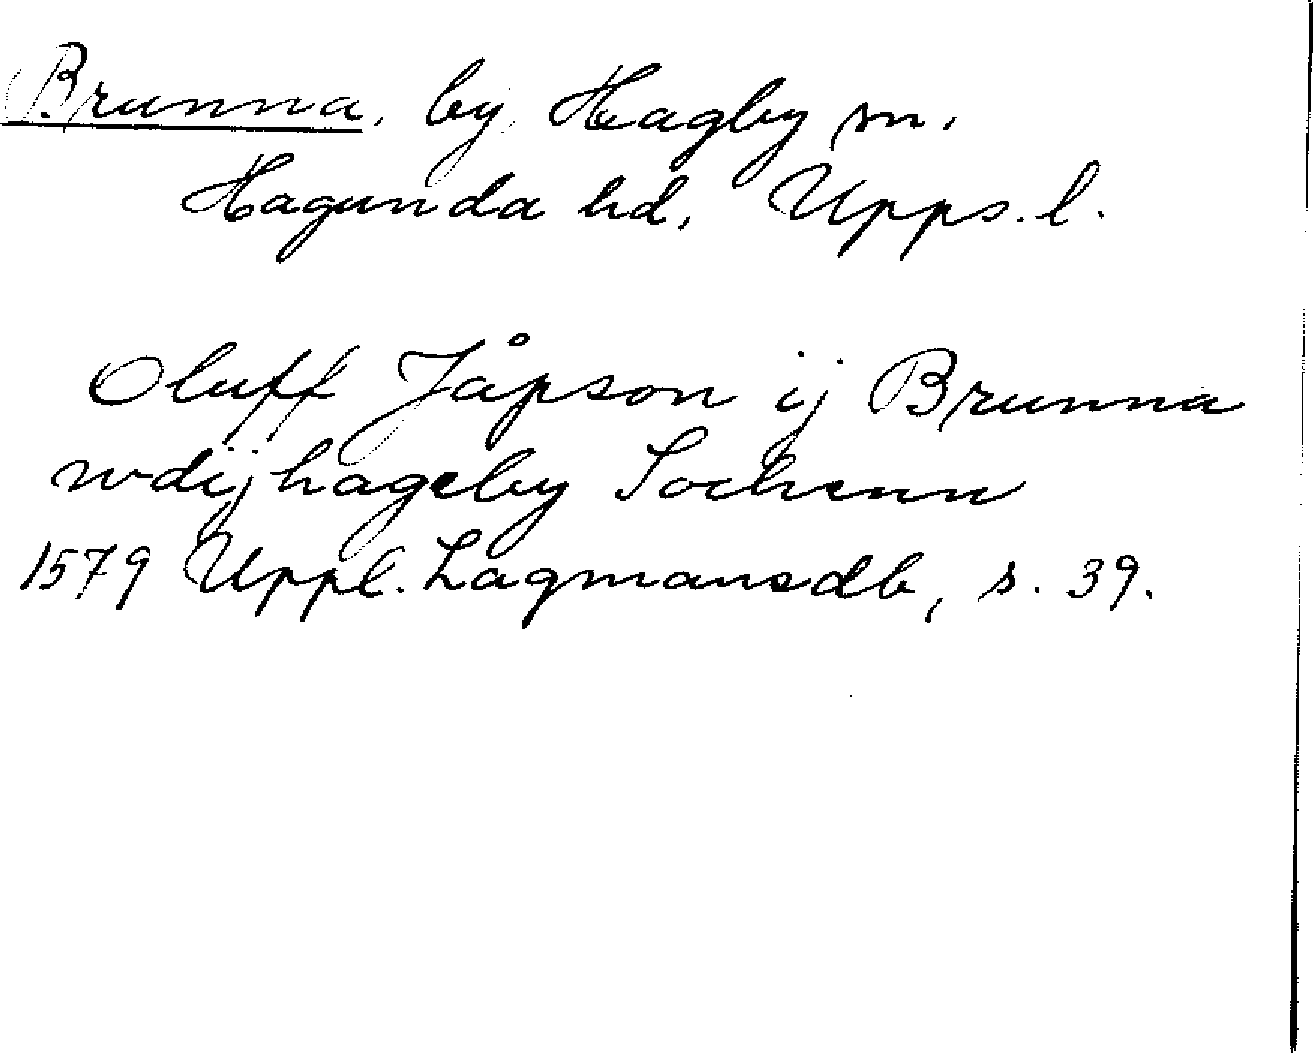 Brunna, by, Hagby sn.
Hagunda hd, Upps. l.
Oluff Jåpson ij Brunna
wdij hageby Sochenn
1579 Uppl. Lagmansdb, s. 39.